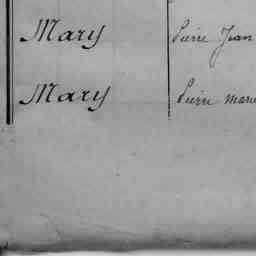 Mary Pierre Jean
Mary Pierre Marie